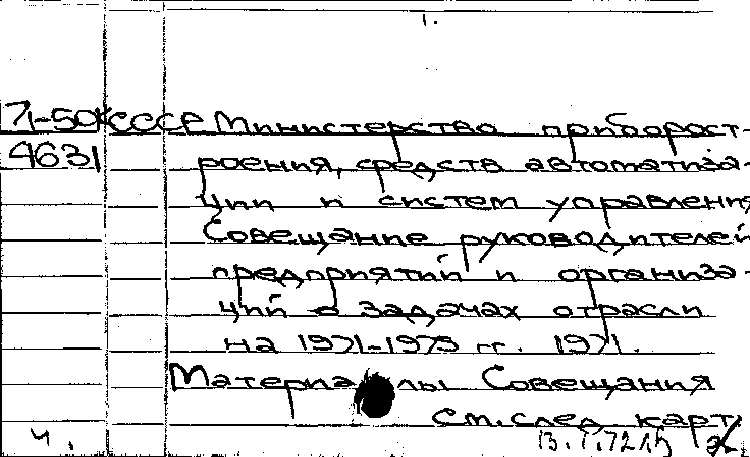 1.
71-50к СССР Министерство приборост-
4631 роения, средств автоматиза-
ции и систем управления
Совещание руководителей
предприятий и организа-
ций о задачах отрасли
на 1971-1975 гг. 1971.
Материалы Совещания
см. след карт.
ч.